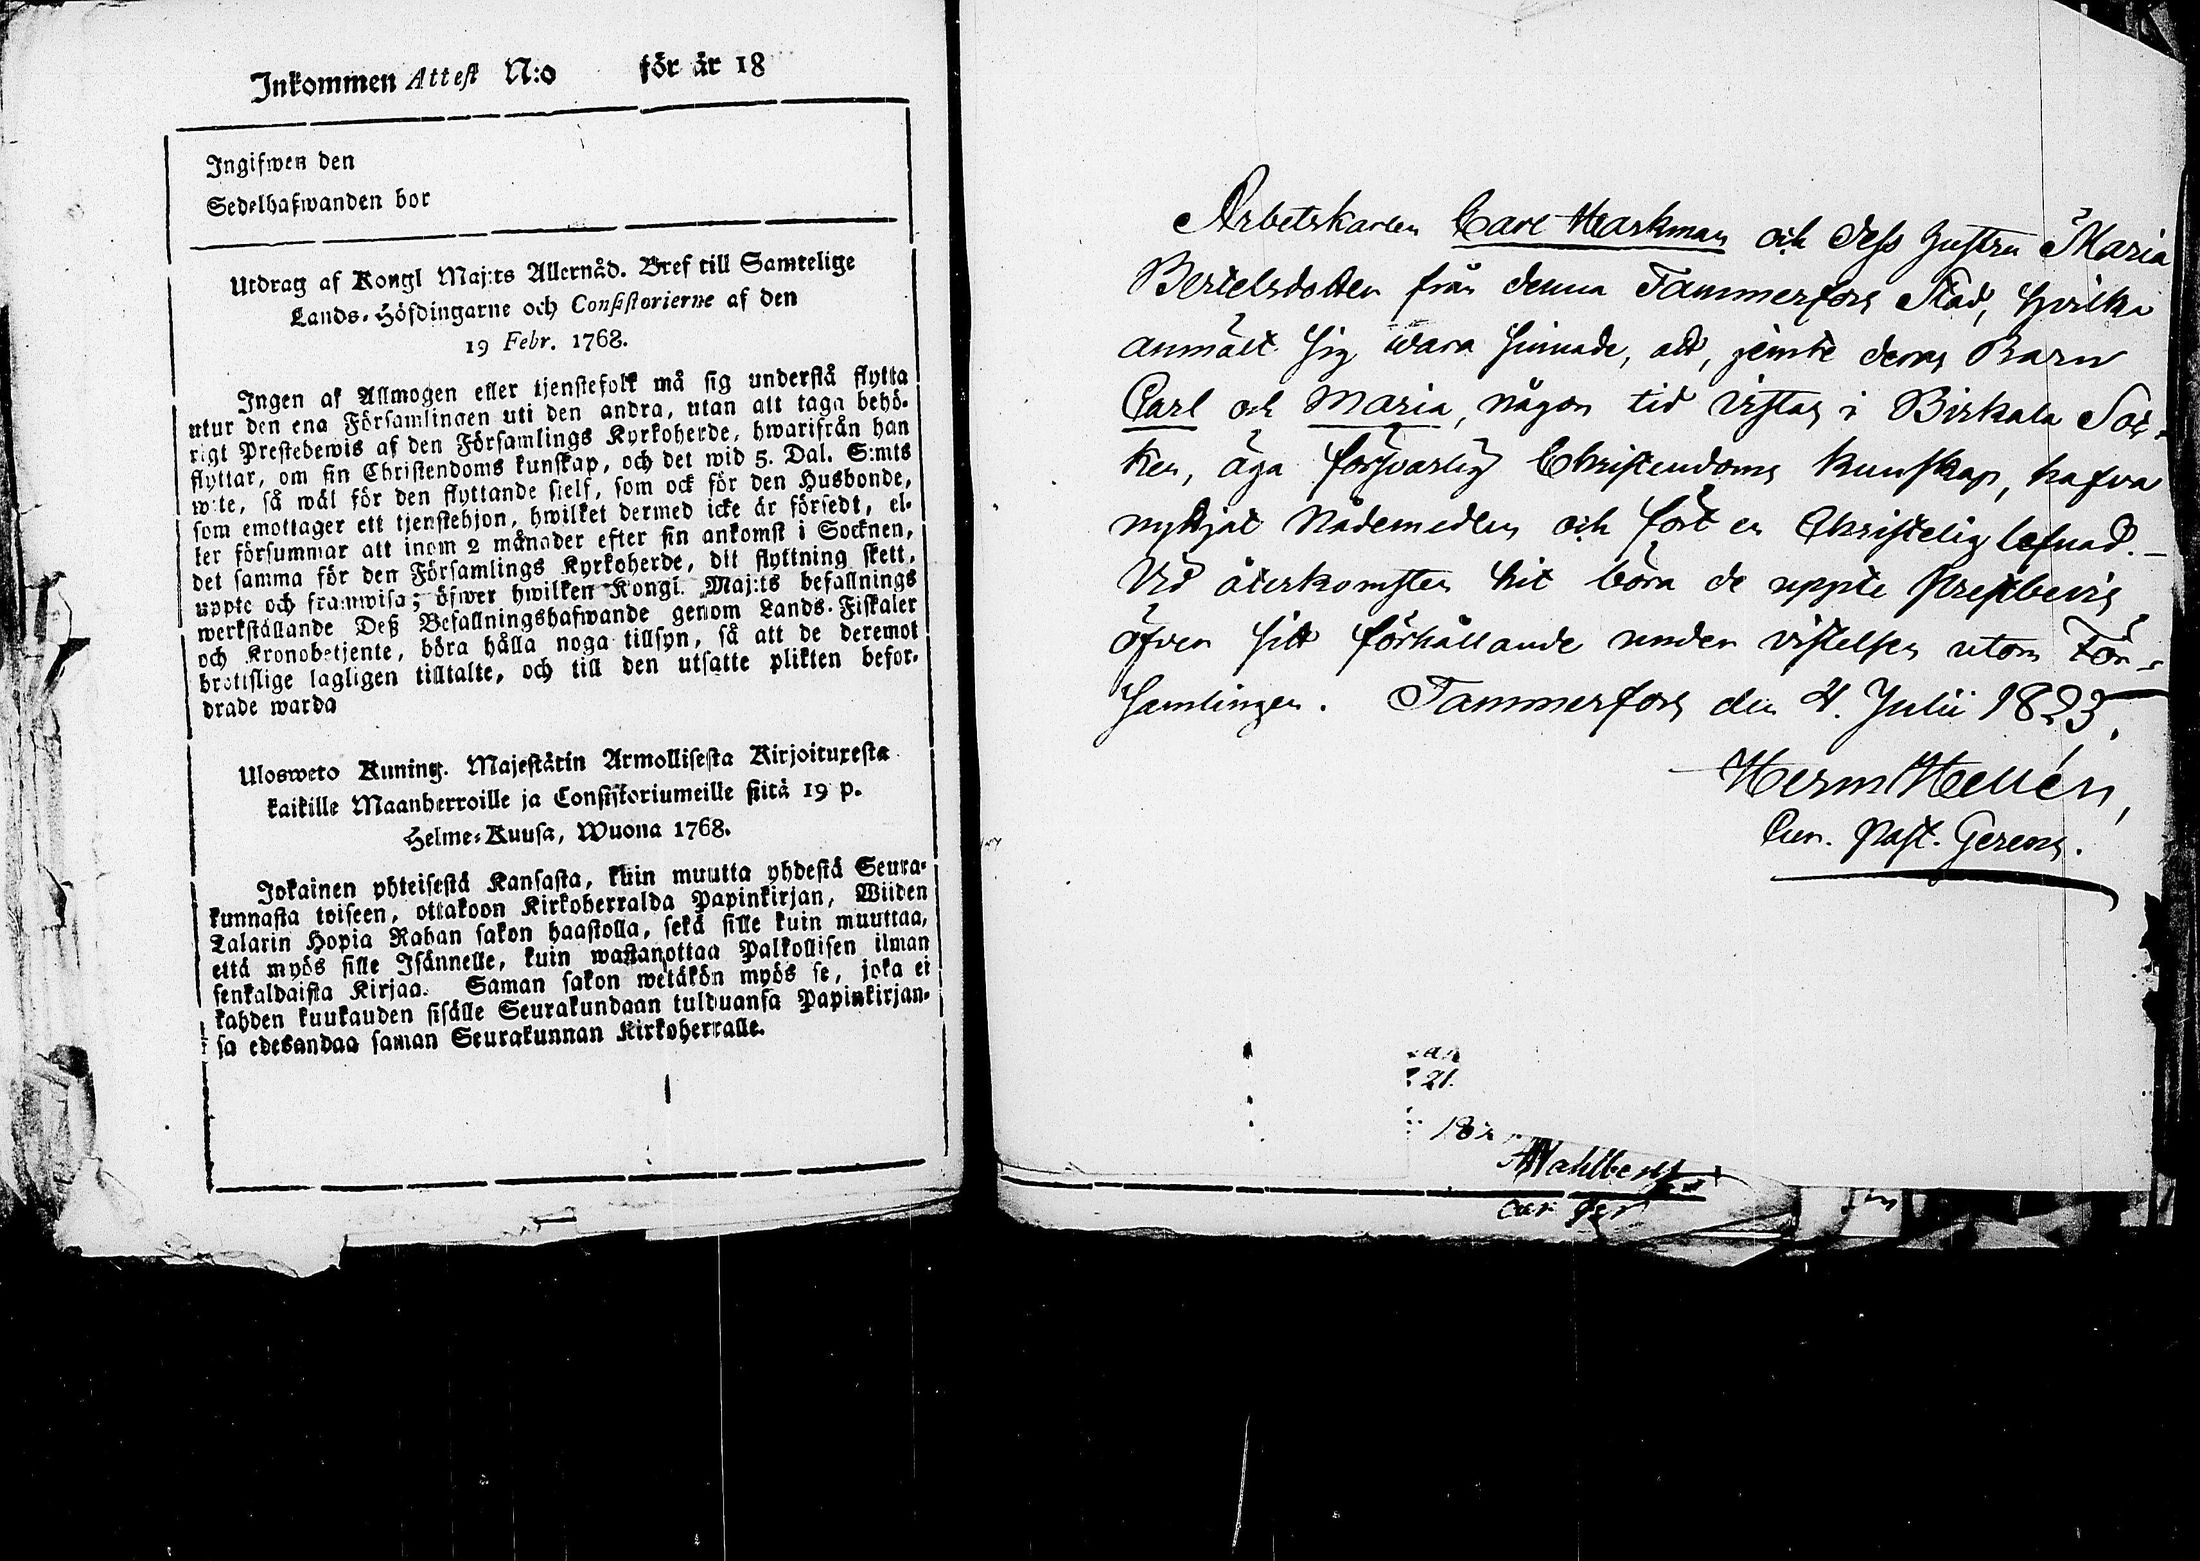 Inkommen Attest N:o för år 18
Ingifwen den
Sedelhafwanden bor
Utdrag af Kongl Maj:ts Allernåd. Bref till Samtelige
Lands-Höfdingarne och Consistorierne af den
19 Febr. 1768.
Ingen af Allmogen eller tjenstefolk må sig understå flytta
utur den ena Församlingen uti den andra, utan att taga behö-
rigt Prestebewis af den Församlings Kyrkoherde, hwarifrån han
flyttar, om sin Christendoms kunskap, och det wid 5. Dal. S:mts
wite, så wäl för den flyttande sielf, som ock för den Husbonde,
som emottager ett tjenstehjon, hwilket dermed icke är försedt, el-
ler försummar att inom 2 månader efter sin ankomst i Socknen,
det samma för den Församlings Kyrkoherde, dit flyttning skett,
uppte och framwisa; öfwer hwilken Kongl. Maj:ts befallnings
werkställande Deß Befallningshafwande genom Lands-Fiskaler
och Kronobetjente, böra hålla noga tillsyn, så att de deremot
brottslige lagligen tilltalte, och till den utsatte plikten befor-
drade warda
Ulosweto Kuning. Majestätin Armollisesta Kirjoituxesta
kaikille Maanherroille ja Consistoriumeille siitä 19 p.
Helme-Kuusa, Wuona 1768.
Jokainen yhteisestä Kansasta, kuin muutta yhdestä Seura-
kunnasta toiseen, ottakoon Kirkoherralda Papinkirjan, Wiiden
Talarin Hopia Rahan sakon haastolla, sekä sille kuin muuttaa,
että myös sille Isännelle, kuin wastanottaa Palkollisen ilman
senkaldaista Kirjaa. Saman sakon wetäkön myös se, joka ei
kahden kuukauden sisälle Seurakundaan tulduansa Papinkirjan-
sa edesandaa saman Seurakunnan Kirkoherralle.
Arbetskarlen Carl Markman och dess hustru Maria
Bertelsdotter från denna Tammerfors Stad, hvilka
anmält sig vara sinnade, att, jemte deras Barn
Carl och Maria, någon tid vistas i Birkala Soc-
ken, äga försvarlig Christendoms kunskap, hafva
nyttjat Nådemedlen och fört en Christelig lefnad.-
Vid återkomsten hit böra de uppte Prestbevis
öfver sitt förhållande under vistelsen utom För-
samlingen. Tammerfors den 4. Julii 1823.
Herm Hellén,
Cur. Past. Gerens.
21.
18
Wahlberg
cur ger